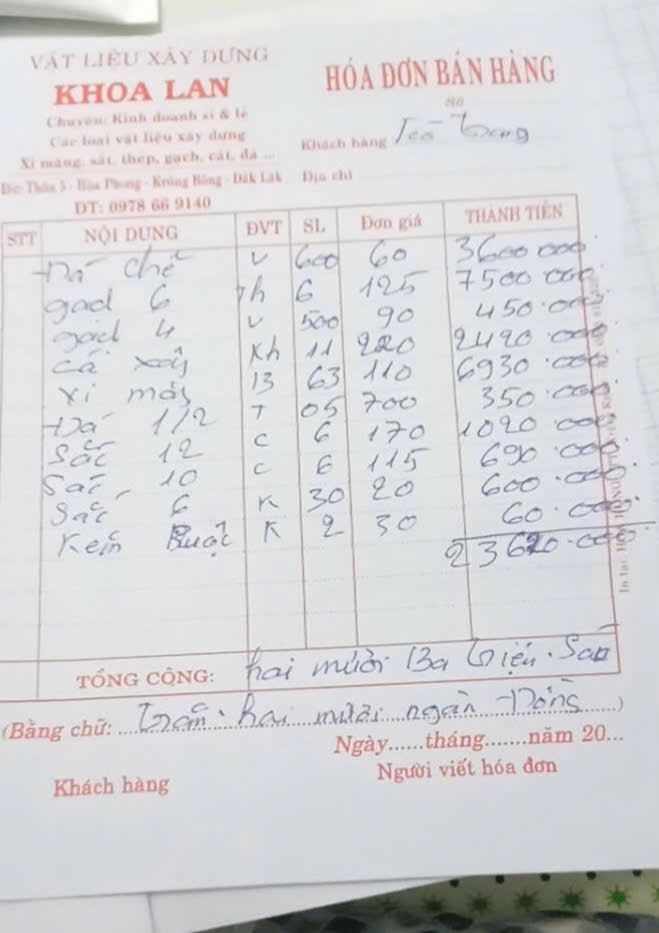 VẬT LIỆU XÂY DỰNG
KHOA LAN
Chuyên: Kinh doanh sỉ & lẻ
Các loại vật liệu xây dựng
Xi măng, sắt, thép, gạch, cát, đá ...
Đ/c: Thôn 5 - Hòa Phong - Krông Bông - Đăk Lăk
ĐT: 0978 66 9140
HÓA ĐƠN BÁN HÀNG
Khách hàng
Địa chỉ
STT NỘI DUNG ĐVT SL Đơn giá THÀNH TIỀN
Đá chẻ v 600 60 3600 000
gạch 6 Th 6 125 7500 000
gạch 4 v 500 90 450.000
cá xây Kh 11 220 2420.000
xi măng B 63 110 6930.000
Đá 1/2 T 05 700 350.000
Sắc 12 c 6 170 1020 000
Sắc 10 c 6 115 690.000
Sắc 6 K 30 20 600.000
Kẽm Buộc K 2 30 60.000
23620.000
TỔNG CỘNG: hai mươi Ba triệu. Sáu
(Bằng chữ: trăm. hai mươi ngàn Đồng)
Ngày......tháng.......năm 20...
Khách hàng Người viết hóa đơn